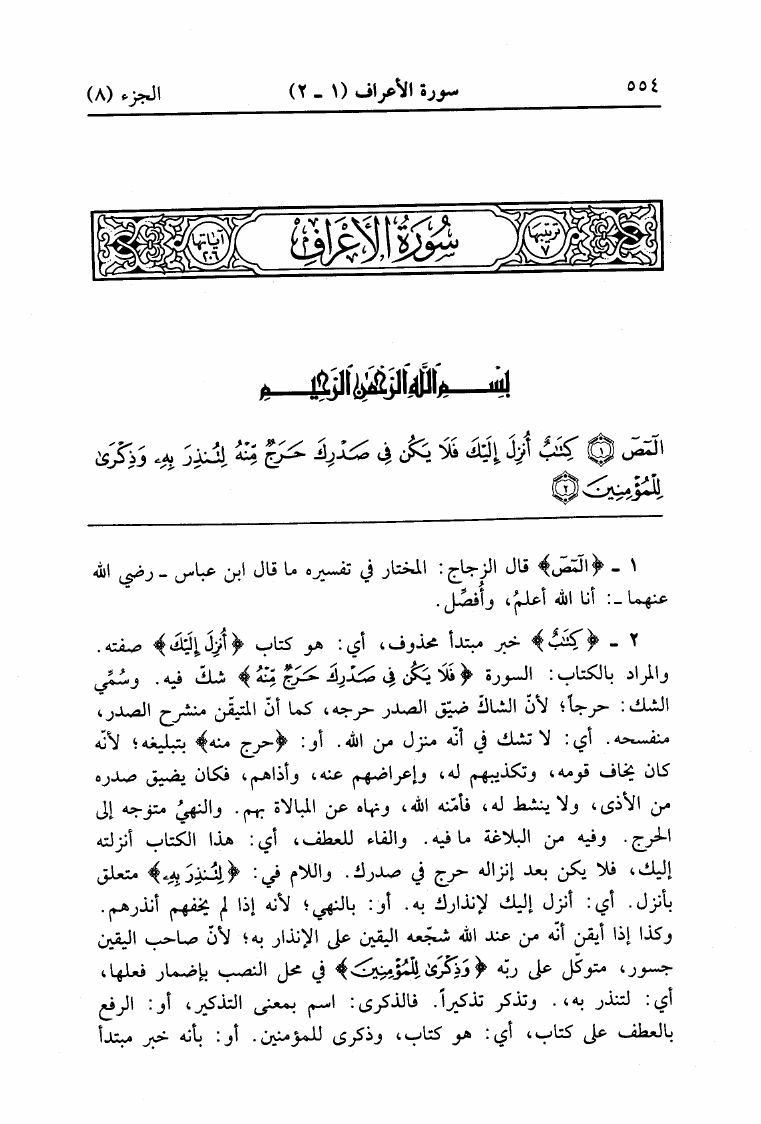 ٥٥٤ سورة الأعراف (١ ـ ٢) الجزء (٨)
ترتيبها ٧ سُورَةُ الأَعْرَافِ آياتها ٢٠٦
بِسْمِ ٱللَّهِ ٱلرَّحْمَٰنِ ٱلرَّحِيمِ
الٓمٓصٓ ١ كِتَٰبٌ أُنزِلَ إِلَيْكَ فَلَا يَكُن فِى صَدْرِكَ حَرَجٌ مِّنْهُ لِتُنذِرَ بِهِۦ وَذِكْرَىٰ
لِلْمُؤْمِنِينَ ٢
١ ـ ﴿الٓمٓصٓ﴾ قال الزجاج: المختار في تفسيره ما قال ابن عباس ـ رضي الله
عنهما ـ: أنا الله أعلمُ، وأُفصِّل.
٢ ـ ﴿كِتَٰبٌ﴾ خبر مبتدأ محذوف، أي: هو كتاب ﴿أُنزِلَ إِلَيْكَ﴾ صفته.
والمراد بالكتاب: السورة ﴿فَلَا يَكُن فِى صَدْرِكَ حَرَجٌ مِّنْهُ﴾ شكّ فيه. وسُمِّي
الشك: حرجاً؛ لأنّ الشاكّ ضيّق الصدر حرجه، كما أنّ المتيقّن منشرح الصدر،
منفسحه. أي: لا تشك في أنّه منزل من الله. أو: ﴿حرج منه﴾ بتبليغه؛ لأنّه
كان يخاف قومه، وتكذيبهم له، وإعراضهم عنه، وأذاهم، فكان يضيق صدره
من الأذى، ولا ينشط له، فأمّنه الله، ونهاه عن المبالاة بهم. والنهيُ متوجه إلى
الحرج. وفيه من البلاغة ما فيه. والفاء للعطف، أي: هذا الكتاب أنزلته
إليك، فلا يكن بعد إنزاله حرج في صدرك. واللام في: ﴿لِتُنذِرَ بِهِۦ﴾ متعلق
بأنزل. أي: أنزل إليك لإنذارك به. أو: بالنهي؛ لأنه إذا لم يخفهم أنذرهم.
وكذا إذا أيقن أنّه من عند الله شجّعه اليقين على الإنذار به؛ لأنّ صاحب اليقين
جسور، متوكّل على ربّه ﴿وَذِكْرَىٰ لِلْمُؤْمِنِينَ﴾ في محل النصب بإضمار فعلها،
أي: لتنذر به،. وتذكر تذكيراً. فالذكرى: اسم بمعنى التذكير، أو: الرفع
بالعطف على كتاب، أي: هو كتاب، وذكرى للمؤمنين. أو: بأنه خبر مبتدأ